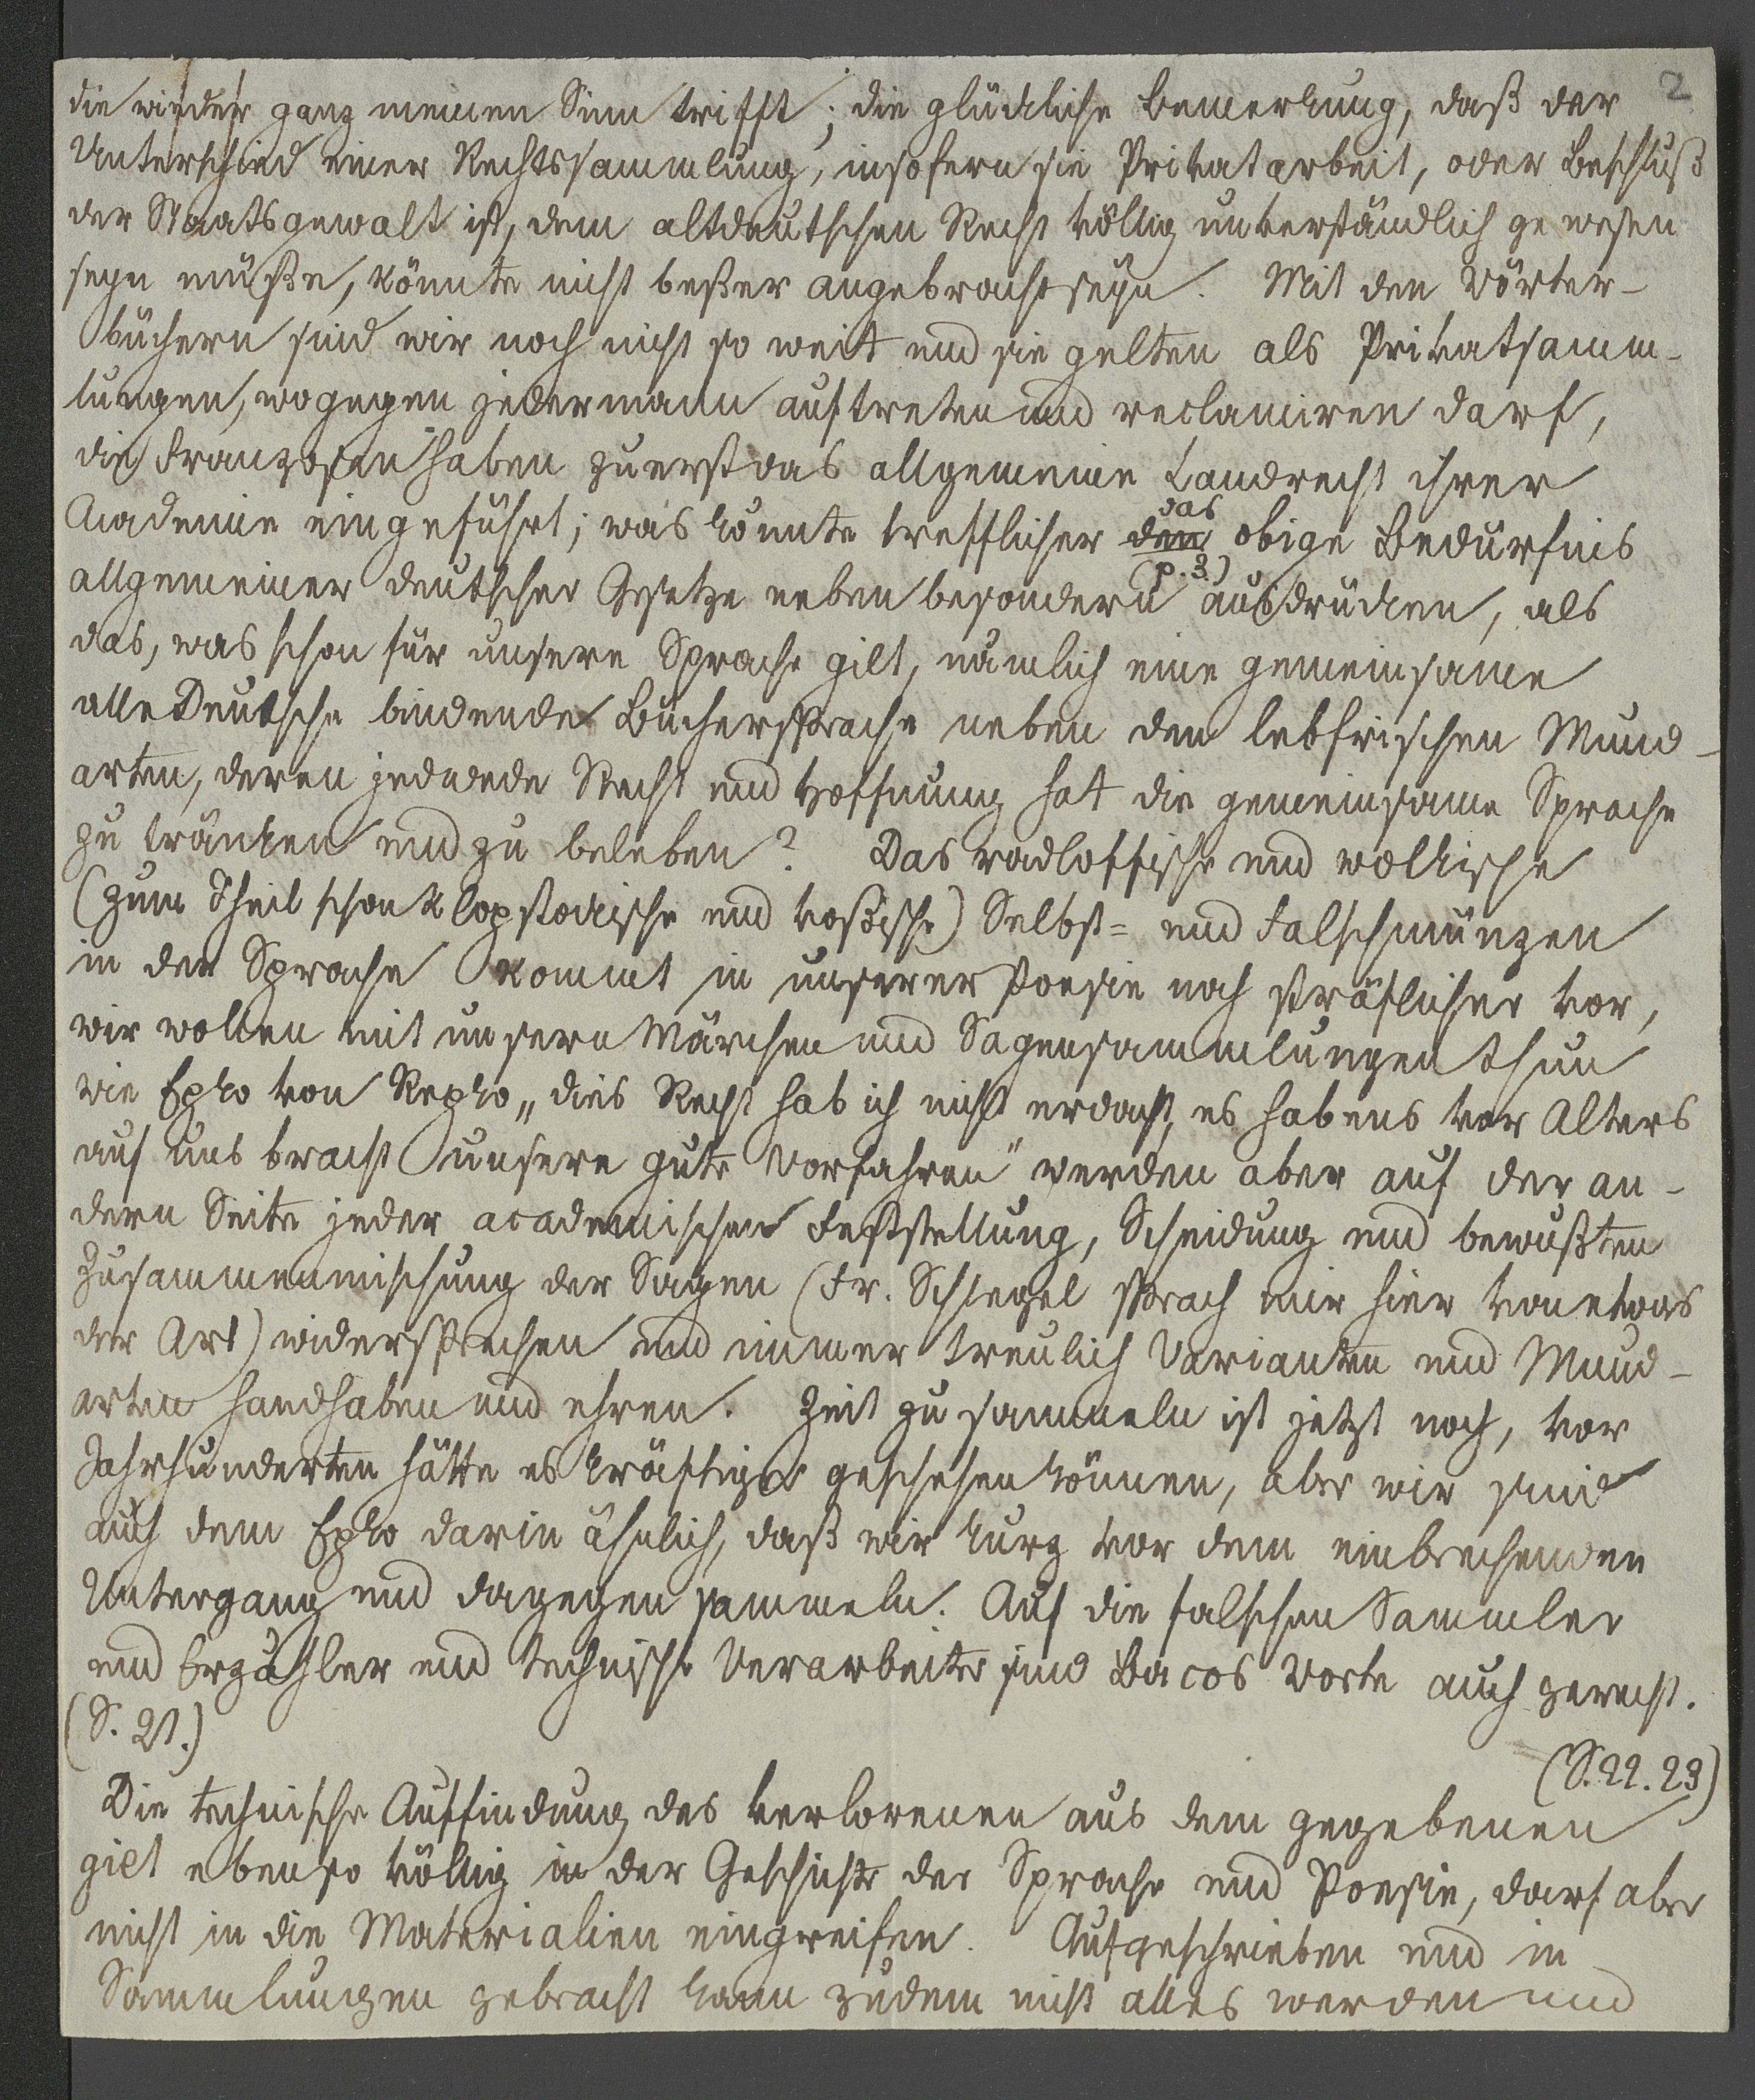 2
die wieder ganz meinen Sinn trifft; die glückliche Bemerkung, daß der
Unterschied einer Rechtssammlung, insofern sie Privatarbeit, oder Beschluß
der Staatsgewalt ist, dem altdeutschen Recht völlig unverständlich gewesen
seyn müße, könnte nicht beßer angebracht seyn. Mit den Wörter-
büchern sind wir noch nicht so weit und sie gelten als Privatsamm-
lungen, wogegen jedermann auftreten und reclamiren darf,
die Franzosen haben zuerst das allgemeine Landrecht ihrer
Academie eingeführt; was könnte trefflicher dem das obige Bedürfnis
allgemeiner deutscher Gesetze neben besondern (p. 3.) ausdrücken, als
das, was schon für unsere Sprache gilt, nämlich eine gemeinsame
alle Deutsche bindende Büchersprache neben den lebfrischen Mund-
arten, deren jedwede Recht und Hoffnung hat die gemeinsame Sprache
zu tränken und zu beleben? Das radloffische und wolkische
(zum Theil schon klopstockische und voßische) Selbst- und Falschmünzen
in der Sprache kommt in unserer Poesie noch sträflicher vor,
wir wollen mit unsern Märchen und Sagensammlungen thun
wie Epko von Repko „dies Recht hab ich nicht erdacht, es habens vor Alters
auf uns bracht unsere gute Vorfahren" werden aber auf der an-
dern Seite jeder academischen Feststellung, Scheidung und bewußten
Zusammenmischung der Sagen (Fr. Schlegel sprach mir hier von etwas
der Art) widersprechen und immer treulich Varianten und Mund-
arten handhaben und ehren. Zeit zu sammeln ist jetzt noch, vor
Jahrhunderten hätte es kräftiger geschehen können, aber wir sind
auch dem Epko darin ähnlich, daß wir kurz vor dem einbrechenden
Untergang und dagegen sammeln. Auf die falschen Sammler
und Erzähler und technische Verarbeiter sind Bacos Worte auch gerecht.
(S. 21.)
(S. 22. 23)
Die technische Auffindung des verlorenen aus dem gegebenen
gilt ebenso völlig in der Geschichte der Sprache und Poesie, darf aber
nicht in die Materialien eingreifen. Aufgeschrieben und in
Sammlungen gebracht kann zudem nicht alles werden und